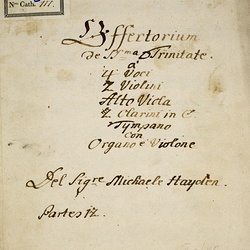 Nro Cath. III.
Offertorium
De SSma Trinitate.
à
4 Voci
2 Violini
Alto Viola
2 Clarini in C
Tympano
con
Organo è Violone.
Del Sigre Michaele Hayden.
Partes 12.